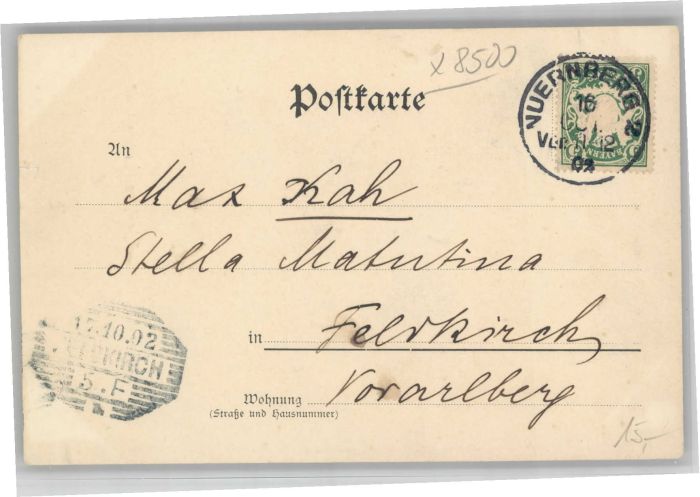 x 8500
Postkarte
NUERNBERG 2
16
VII.12
02
BAYERN
An
Max Kah
Stella Matutina
in Feldkirch
Wohnung Vorarlberg
(Straße und Hausnummer)
17.10.02
FELDKIRCH
5.F
15,-